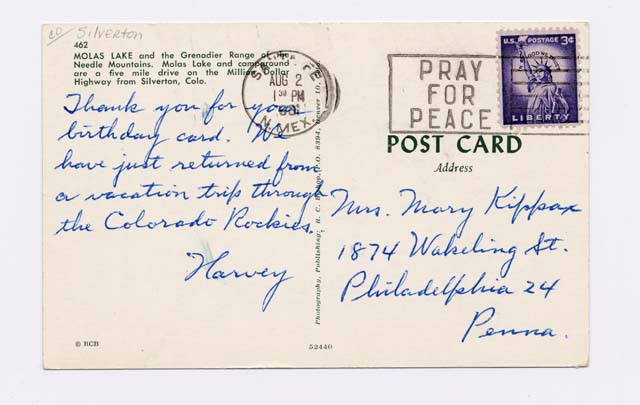 CO Silverton
462
MOLAS LAKE and the Grenadier Range of the
Needle Mountains. Molas Lake and campground
are a five mile drive on the Million Dollar
Highway from Silverton, Colo.
Thank you for your
birthday card. We
have just returned from
a vacation trip through
the Colorado Rockies.
Harvey
© RCB
SANTA FE
AUG 2
1 30 PM
N. MEX.
PRAY
FOR
PEACE
U.S. POSTAGE 3¢
IN GOD WE TRUST
LIBERTY
POST CARD
Address
Mrs. Mary Kippax
1874 Wakeling St.
Philadelphia 24
Penna.
Photography, Publishing: R. C. P.O. 8394, Denver 10,
52440